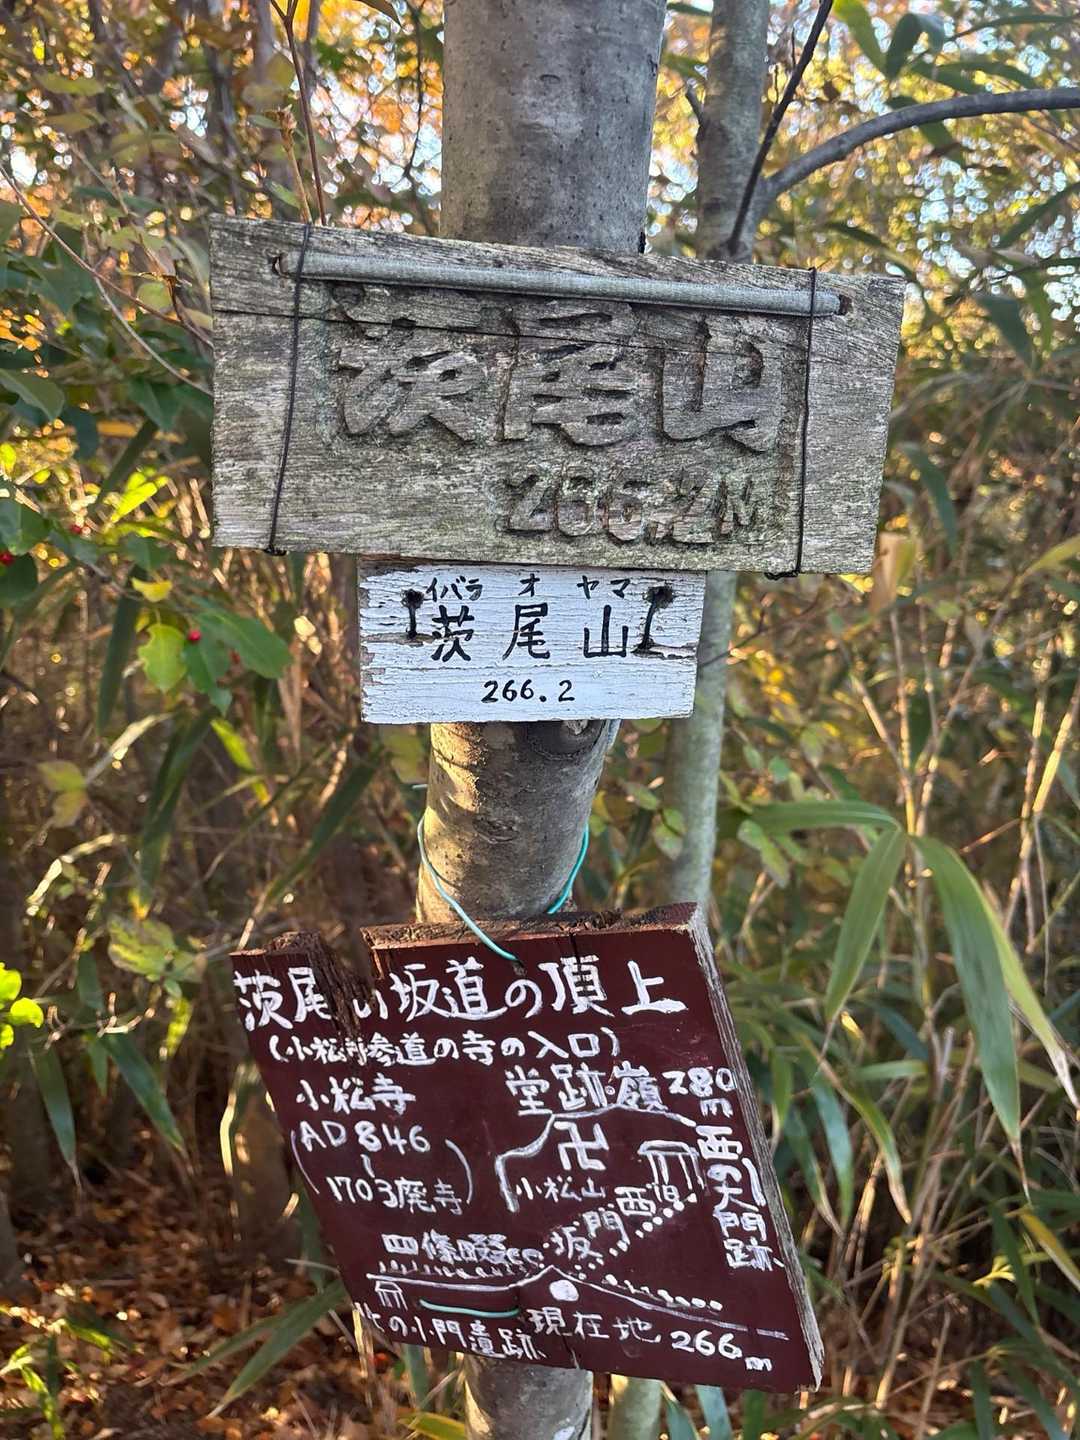 茨尾山
266.2M
イバラ オ ヤマ
茨尾山
266.2
茨尾山坂道の頂上
(小松寺参道の寺の入口)
小松寺
(AD 846
〜
1703廃寺)
堂跡・嶺 280m
卍
小松山
西の大門跡
西門坂
四條畷
北の小門遺跡
現在地 266m